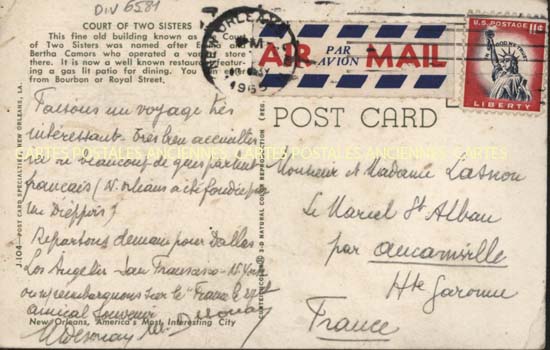 DIV 6581
COURT OF TWO SISTERS
This fine old building known as the Court
of Two Sisters was named after Emma and
Bertha Camors who operated a variety store
there. It is now a well known restaurant featur-
ing a gas lit patio for dining. You can enter
from Bourbon or Royal Street.
Faisons un voyage très
intéressant. Très bien accueillis
ici où beaucoup de gens parlent
français (N. Orléans a été fondée par
un Dieppois)
Repartons demain pour Dallas
Los Angeles San Francisco N. York
où rembarquons sur le "France" le
amical souvenir
New Orleans, America's Most Interesting City
J104—POST CARD SPECIALTIES, NEW ORLEANS, LA.
3-D NATURAL COLOR REPRODUCTION (REG.
NEW ORLEANS
PM
AIR PAR AVION MAIL
U.S. POSTAGE 11¢
LIBERTY
POST CARD
Monsieur et Madame Lasnou
Le Marcel St Alban
par Aucamville
Hte Garonne
France
CARTES POSTALES ANCIENNES CARTES POSTALES ANCIENNES CARTES